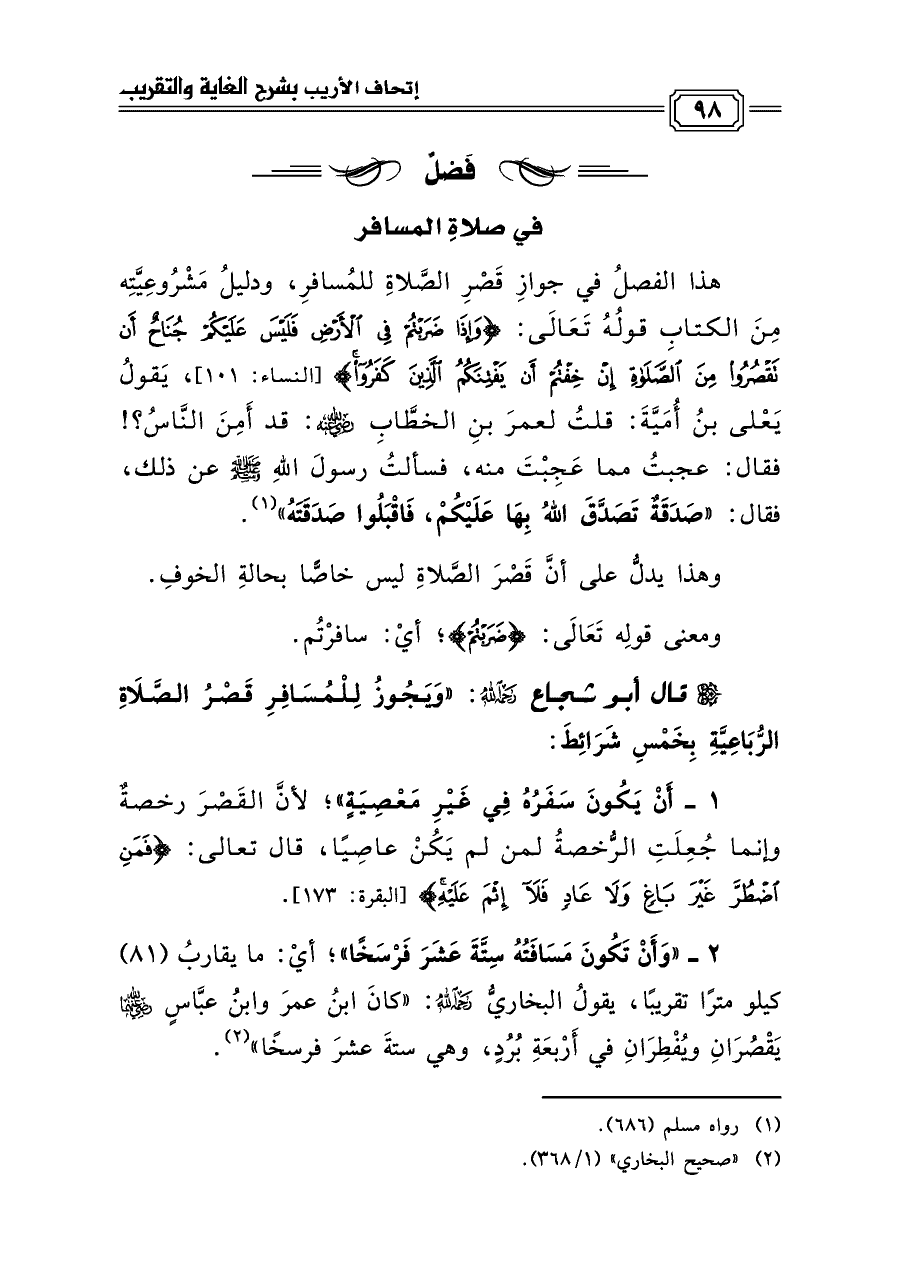 إتحاف الأريب بشرح الغاية والتقريب
٩٨
فَصْلٌ
في صلاةِ المسافر
هذا الفصلُ في جوازِ قَصْرِ الصَّلاةِ للمُسافرِ، ودليلُ مَشْرُوعِيَّتِه
مِنَ الكتابِ قولُهُ تَعَالَى: ﴿وَإِذَا ضَرَبۡتُمۡ فِي ٱلۡأَرۡضِ فَلَيۡسَ عَلَيۡكُمۡ جُنَاحٌ أَن
تَقۡصُرُواْ مِنَ ٱلصَّلَوٰةِ إِنۡ خِفۡتُمۡ أَن يَفۡتِنَكُمُ ٱلَّذِينَ كَفَرُوٓاْۚ﴾ [النساء: ١٠١]، يَقولُ
يَعْلى بنُ أُمَيَّةَ: قلتُ لعمرَ بنِ الخطَّابِ رضي الله عنه: قد أَمِنَ النَّاسُ؟!
فقال: عجبتُ مما عَجِبْتَ منه، فسألتُ رسولَ اللهِ ﷺ عن ذلك،
فقال: «صَدَقَةٌ تَصَدَّقَ اللهُ بِهَا عَلَيْكُمْ، فَاقْبَلُوا صَدَقَتَهُ»(١).
وهذا يدلُّ على أنَّ قَصْرَ الصَّلاةِ ليس خاصًّا بحالةِ الخوفِ.
ومعنى قولِه تَعَالَى: ﴿ضَرَبۡتُمۡ﴾؛ أيْ: سافرْتُم.
قال أبو شجاع رحمه الله: «وَيَجُوزُ لِلْمُسَافِرِ قَصْرُ الصَّلَاةِ
الرُّبَاعِيَّةِ بِخَمْسِ شَرَائِطَ:
١ ـ أَنْ يَكُونَ سَفَرُهُ فِي غَيْرِ مَعْصِيَةٍ»؛ لأنَّ القَصْرَ رخصةٌ
وإنما جُعِلَتِ الرُّخصةُ لمن لم يَكُنْ عاصِيًا، قال تعالى: ﴿فَمَنِ
ٱضۡطُرَّ غَيۡرَ بَاغٖ وَلَا عَادٖ فَلَآ إِثۡمَ عَلَيۡهِۚ﴾ [البقرة: ١٧٣].
٢ ـ «وَأَنْ تَكُونَ مَسَافَتُهُ سِتَّةَ عَشَرَ فَرْسَخًا»؛ أيْ: ما يقاربُ (٨١)
كيلو مترًا تقريبًا، يقولُ البخاريُّ رحمه الله: «كانَ ابنُ عمرَ وابنُ عبَّاسٍ رضي الله عنهم
يَقْصُرَانِ ويُفْطِرَانِ في أَرْبَعَةِ بُرُدٍ، وهي ستةَ عشرَ فرسخًا»(٢).
(١) رواه مسلم (٦٨٦).
(٢) «صحيح البخاري» (٣٦٨/١).